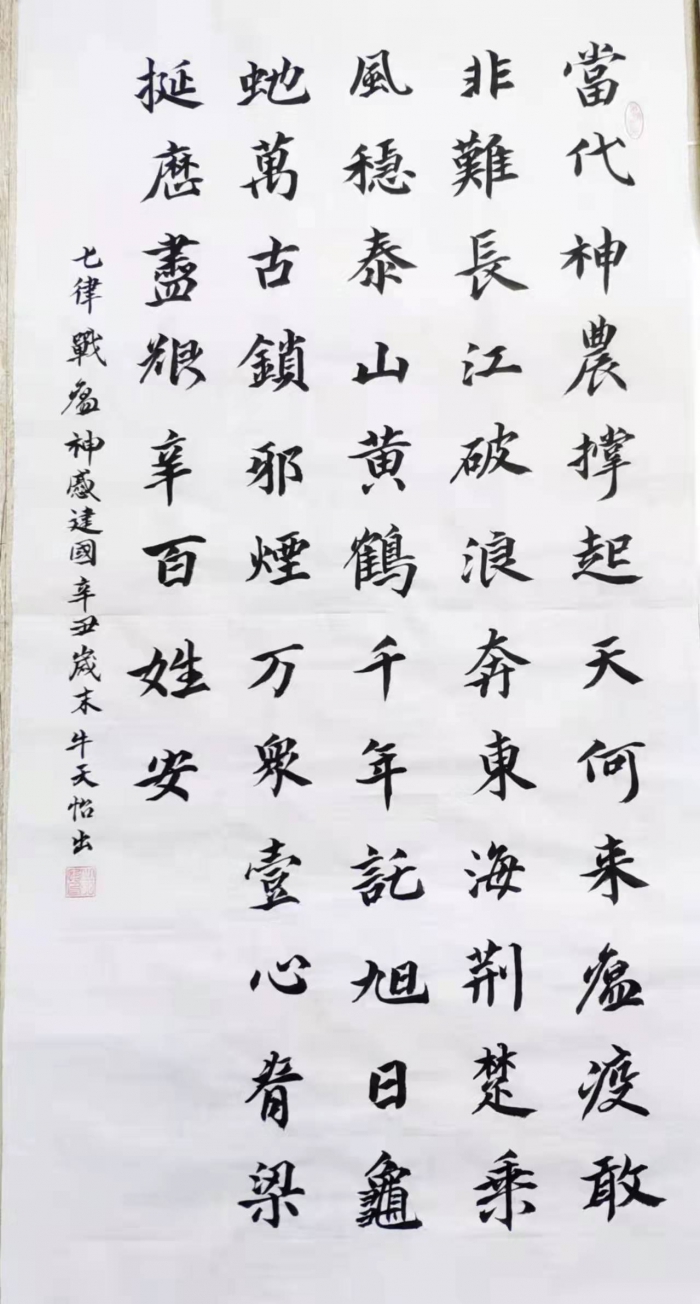 當代神農撑起天何来瘟疫敢
非難長江破浪奔東海荆楚乘
風穩泰山黄鶴千年託旭日龜
虵萬古鎖邪煙万衆壹心脊梁
挺歷盡艱辛百姓安
七律戰瘟神感建國辛丑歲末牛天怡出